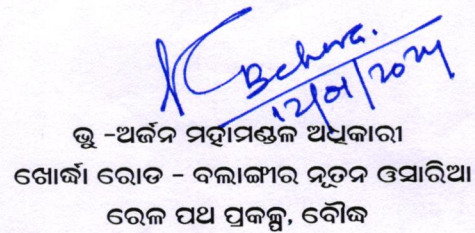 Behera.
12/01/2024
ଭୁ -ଅର୍ଜନ ମହାମଣ୍ଡଳ ଅଧିକାରୀ
ଖୋର୍ଦ୍ଧା ରୋଡ - ବଲାଙ୍ଗୀର ନୂତନ ଓସାରିଆ
ରେଳ ପଥ ପ୍ରକଳ୍ପ, ବୌଦ୍ଧ